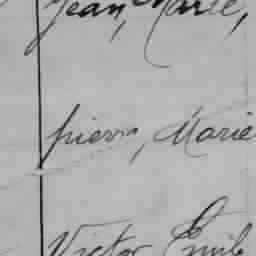 Jean, Marie,
pierre, Marie
Victor Emile